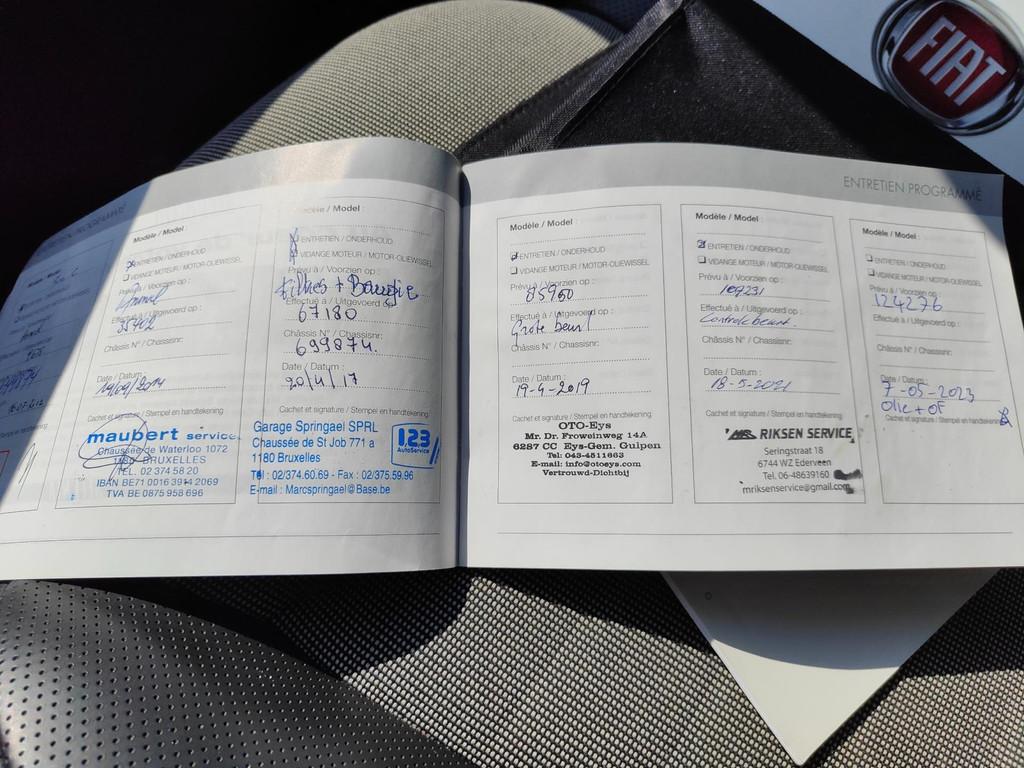 FIAT
ENTRETIEN PROGRAMMÉ
Modèle / Model :
ENTRETIEN / ONDERHOUD
VIDANGE MOTEUR / MOTOR-OLIEWISSEL
Prévu à / Voorzien op :
Effectué à / Uitgevoerd op :
35402
Châssis N° / Chassisnr:
Date / Datum :
19/09/2014
Cachet et signature / Stempel en handtekening
maubert service
Chaussée de Waterloo 1072
1180 BRUXELLES
TEL. 02 374 58 20
IBAN BE71 0016 3914 2069
TVA BE 0875 958 696
Modèle / Model :
ENTRETIEN / ONDERHOUD
VIDANGE MOTEUR / MOTOR-OLIEWISSEL
Prévu à / Voorzien op :
Filtres + Bougie
Effectué à / Uitgevoerd op :
67180
Châssis N° / Chassisnr:
699874
Date / Datum :
20/4/17
Cachet et signature / Stempel en handtekening
Garage Springael SPRL
Chaussée de St Job 771 a
1180 Bruxelles
Tél : 02/374.60.69 - Fax : 02/375.59.96
E-mail : Marcspringael@Base.be
1.2.3
AutoService
ENTRETIEN PROGRAMMÉ
Modèle / Model :
ENTRETIEN / ONDERHOUD
VIDANGE MOTEUR / MOTOR-OLIEWISSEL
Prévu à / Voorzien op :
85960
Effectué à / Uitgevoerd op :
Grote beurt
Châssis N° / Chassisnr:
Date / Datum :
19-4-2019
Cachet et signature / Stempel en handtekening
OTO-Eys
Mr. Dr. Froweinweg 14A
6287 CC Eys-Gem. Gulpen
Tel: 043-4511663
E-mail: info@otoeys.com
Vertrouwd-Dichtbij
Modèle / Model :
ENTRETIEN / ONDERHOUD
VIDANGE MOTEUR / MOTOR-OLIEWISSEL
Prévu à / Voorzien op :
109231
Effectué à / Uitgevoerd op :
Controle beurt.
Châssis N° / Chassisnr:
Date / Datum :
18-5-2021
Cachet et signature / Stempel en handtekening
RIKSEN SERVICE
Seringstraat 18
6744 WZ Ederveen
Tel. 06-48639160
mriksenservice@gmail.com
Modèle / Model :
ENTRETIEN / ONDERHOUD
VIDANGE MOTEUR / MOTOR-OLIEWISSEL
Prévu à / Voorzien op :
124276
Effectué à / Uitgevoerd op :
Châssis N° / Chassisnr:
Date / Datum :
7-05-2023
Olie + OF
Cachet et signature / Stempel en handtekening